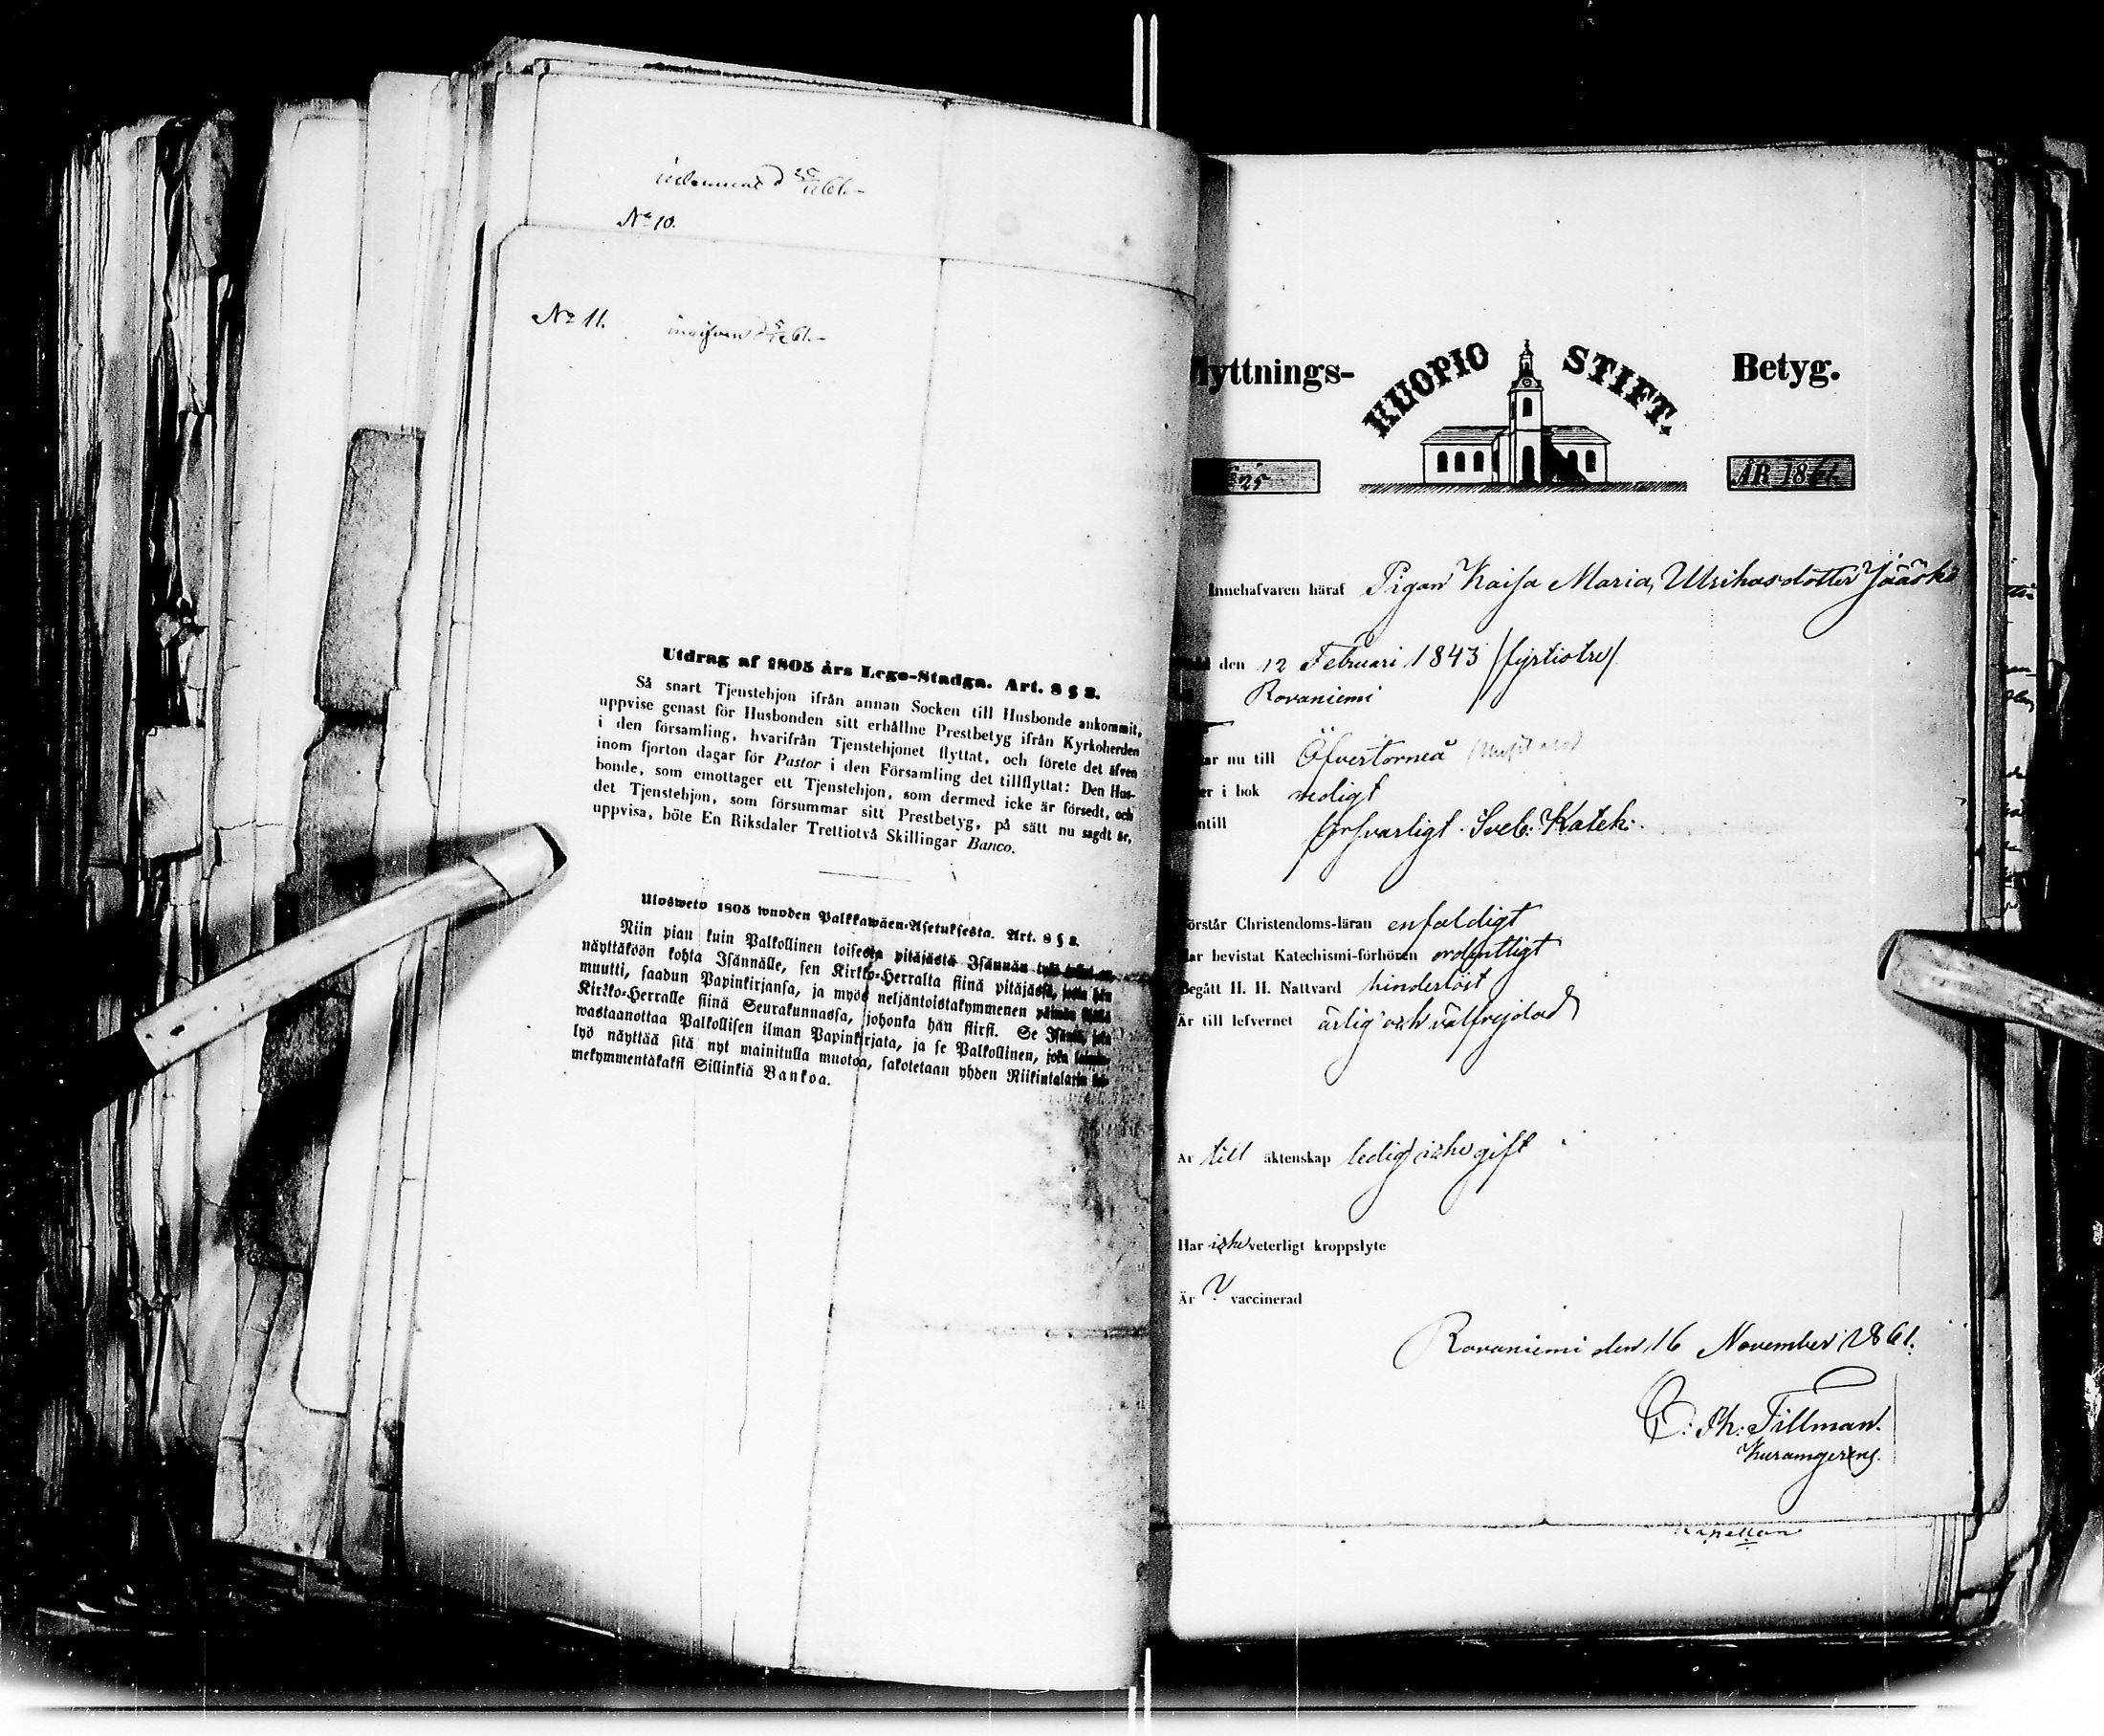 No 10.
No 11.
Utdrag af 1805 års Lego-Stadga. Art. 8 § 8.
Så snart Tjenstehjon ifrån annan Socken till Husbonde ankommit,
uppvise genast för Husbonden sitt erhållne Prestbetyg ifrån Kyrkoherden
i den församling, hvarifrån Tjenstehjonet flyttat, och förete det äfven
inom fjorton dagar för Pastor i den Församling det tillflyttat: Den Hus-
bonde, som emottager ett Tjenstehjon, som dermed icke är försedt, och
det Tjenstehjon, som försummar sitt Prestbetyg, på sätt nu sagdt är,
uppvisa, böte En Riksdaler Trettiotvå Skillingar Banco.
Uloswetv 1805 wuoden Palkkawäen-Asetuksesta. Art. 8 § 8.
Niin pian kuin Palkollinen toisesta pitäjästä Isännän
näyttäköön kohta Isännälle, sen Kirkko-Herralta siinä pitäjässä, josta hän
muutti, saadun Papinkirjansa, ja myös neljäntoistakymmenen päiwän
Kirkko-Herralle siinä Seurakunnassa, johonka hän siirsi. Se Isäntä, joka
wastaanottaa Palkollisen ilman Papinkirjata, ja se Palkollinen, joka
lyö näyttää sitä nyt mainitulla muotoa, sakotetaan yhden Riikintalarin
mekymmentäkaksi Sillinkiä Bankoa.
lyttnings- KUOPIO STIFT. Betyg.
25 ÅR 1861
Innehafvaren häraf Pigan Kaisa Maria, Ulrikasdotter Jääskö
den 12 Februari 1843 /fyrtiotre/
Rovaniemi
ar nu till Öfvertorneå
er i bok redigt
ntill försvarligt. Sveb. Katek.
örstår Christendoms-läran enfaldigt
ar bevistat Katechismi-förhören ordentligt
Begått H. H. Nattvard hinderlöst
Är till lefvernet ärlig och välfrejdad
Är till äktenskap ledig icke gift
Har icke veterligt kroppslyte
Är ? vaccinerad
Rovaniemi den 16 November 1861.
C. Th. Tillman.
Kapellan